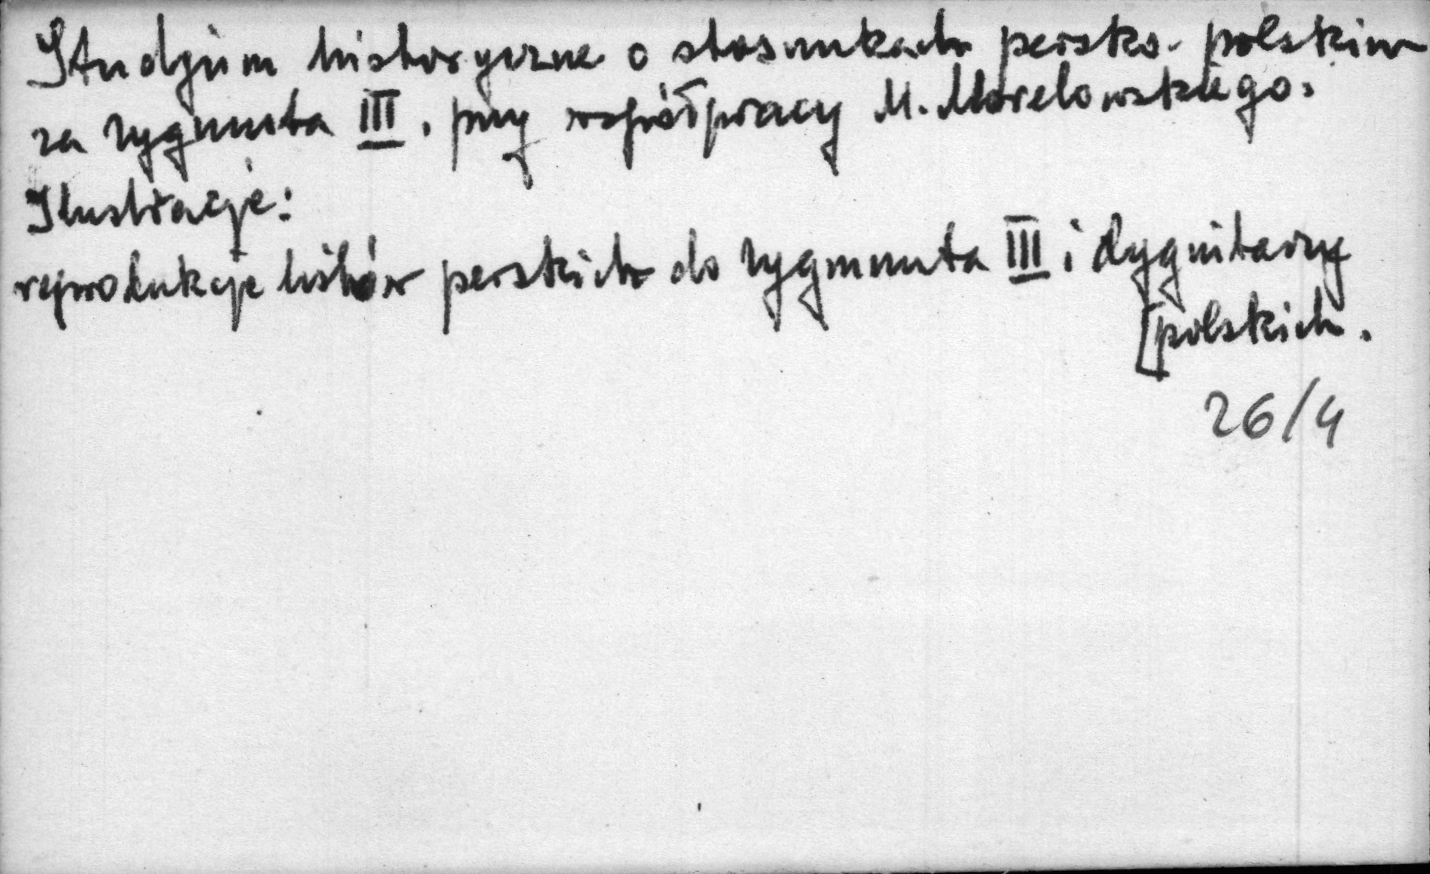 Studjum historyczne o stosunkach persko-polskich
za Zygmunta III, przy współpracy M. Morelowskiego.
Ilustracje:
reprodukcje listów perskich do Zygmunta III i dygnitarzy
[polskich.
26/4